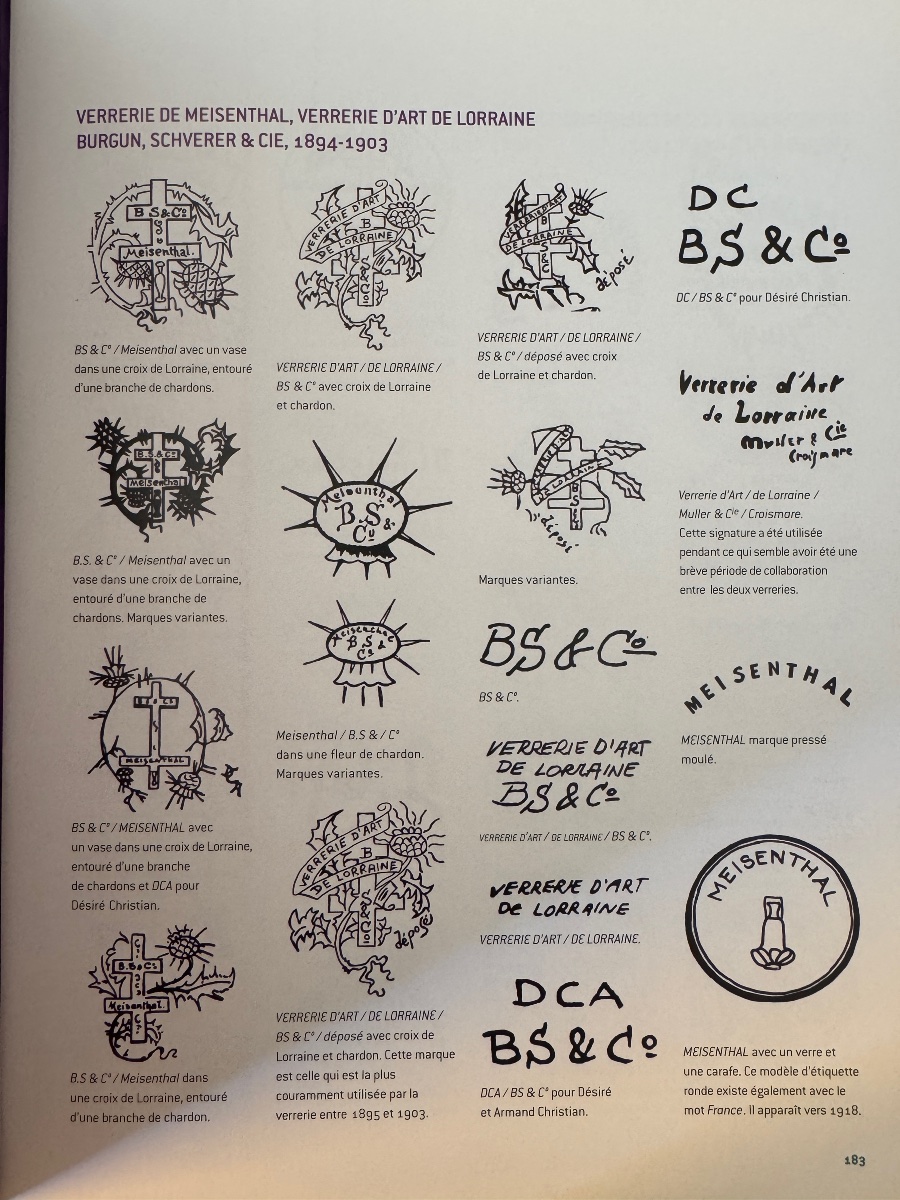 VERRERIE DE MEISENTHAL, VERRERIE D'ART DE LORRAINE
BURGUN, SCHVERER & CIE, 1894-1903
B S & Cº
Meisenthal.
BS & C° / Meisenthal avec un vase
dans une croix de Lorraine, entouré
d'une branche de chardons.
B.S. & Cº
Meisenthal
B.S. & C° / Meisenthal avec un
vase dans une croix de Lorraine,
entouré d'une branche de
chardons. Marques variantes.
MEISENTHAL
BS & C° / MEISENTHAL avec
un vase dans une croix de Lorraine,
entouré d'une branche
de chardons et DCA pour
Désiré Christian.
B.S & Cº
Meisenthal.
B.S & C° / Meisenthal dans
une croix de Lorraine, entouré
d'une branche de chardon.
VERRERIE D'ART
B
DE LORRAINE
VERRERIE D'ART / DE LORRAINE /
BS & C° avec croix de Lorraine
et chardon.
B.S
&
Cº
Meisenthal
B.S &
Cº
Meisenthal / B.S & / C°
dans une fleur de chardon.
Marques variantes.
VERRERIE D'ART
B
DE LORRAINE
déposé
VERRERIE D'ART / DE LORRAINE /
BS & C° / déposé avec croix de
Lorraine et chardon. Cette marque
est celle qui est la plus
couramment utilisée par la
verrerie entre 1895 et 1903.
VERRERIE D'ART
B
DE LORRAINE
S
&
C
déposé
VERRERIE D'ART / DE LORRAINE /
BS & C° / déposé avec croix
de Lorraine et chardon.
VERRERIE D'ART
DE LORRAINE
B
S
déposé
Marques variantes.
BS & Cº
BS & C°.
VERRERIE D'ART
DE LORRAINE
BS & Cº
VERRERIE D'ART / DE LORRAINE / BS & C°.
VERRERIE D'ART
De LORRAINE
VERRERIE D'ART / DE LORRAINE.
DCA
BS & Cº
DCA / BS & C° pour Désiré
et Armand Christian.
DC
BS & Cº
DC / BS & C° pour Désiré Christian.
Verrerie d'Art
de Lorraine
Muller & Cie
Croismare
Verrerie d'Art / de Lorraine /
Muller & Cie / Croismare.
Cette signature a été utilisée
pendant ce qui semble avoir été une
brève période de collaboration
entre les deux verreries.
MEISENTHAL
MEISENTHAL marque pressé
moulé.
MEISENTHAL
MEISENTHAL avec un verre et
une carafe. Ce modèle d'étiquette
ronde existe également avec le
mot France. Il apparaît vers 1918.
183